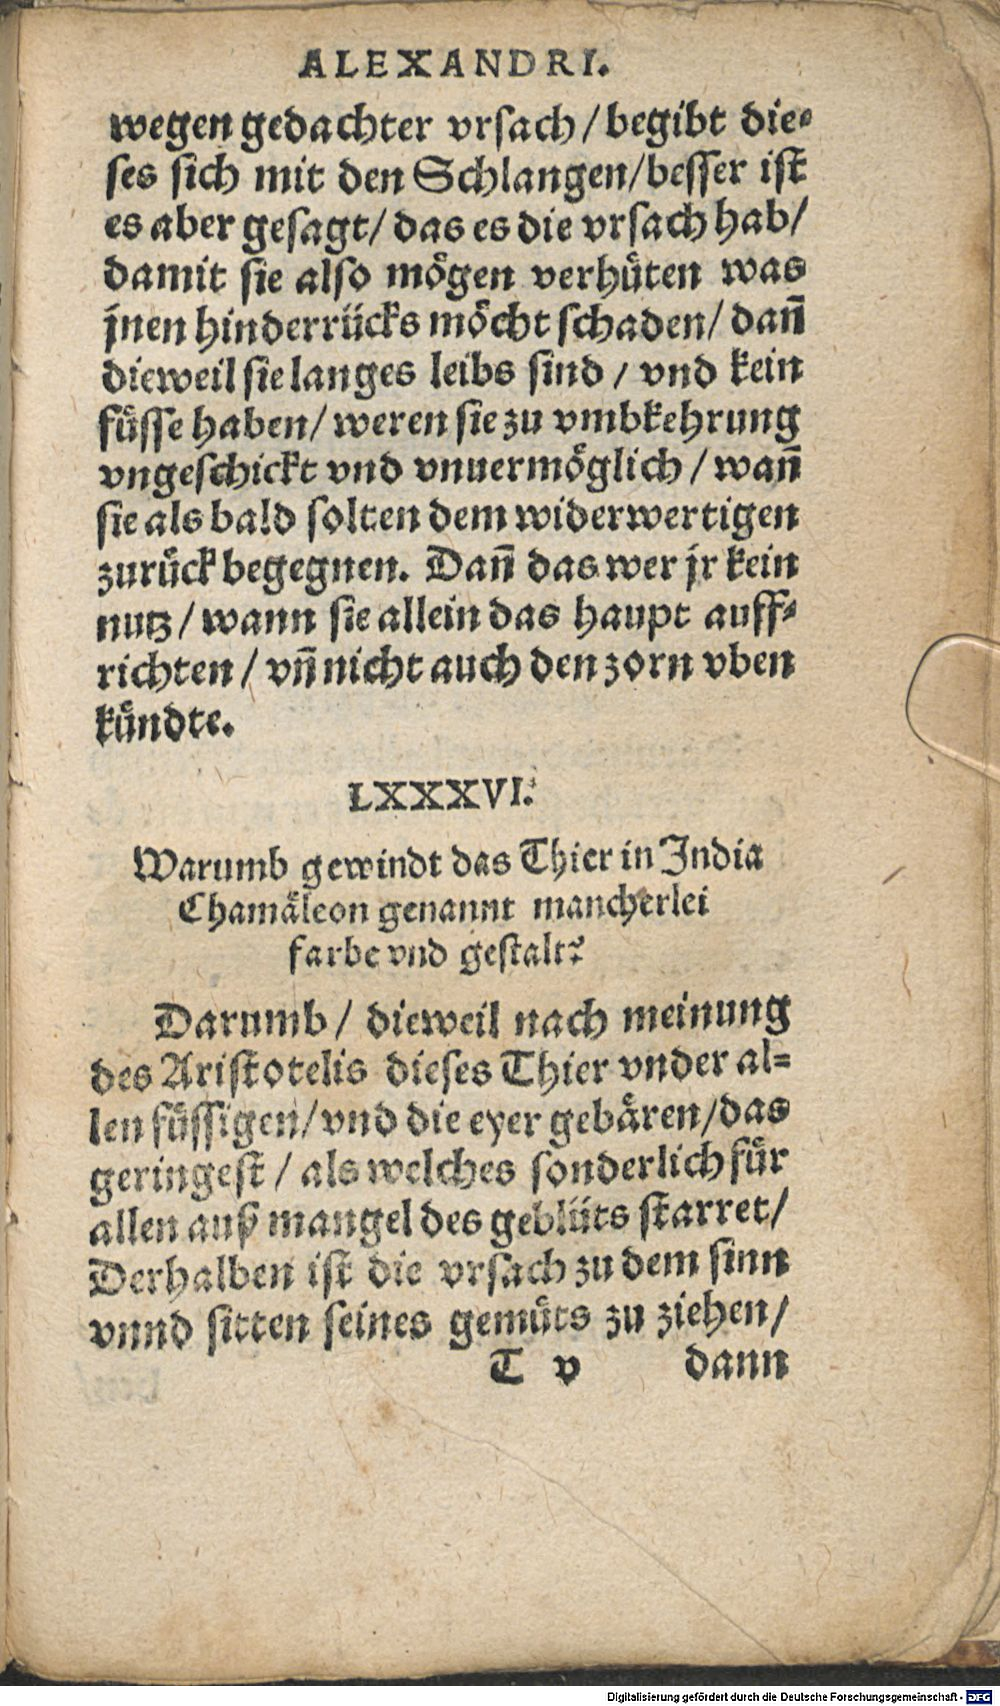 ALEXANDRI.
wegen gedachter vrsach / begibt die-
ses sich mit den Schlangen / besser ist
es aber gesagt / das es die vrsach hab /
damit sie also mögen verhüten was
jnen hinderrücks möcht schaden / dañ
dieweil sie langes leibs sind / vnd kein
füsse haben / weren sie zu vmbkehrung
vngeschickt vnd vnuermöglich / wañ
sie als bald solten dem widerwertigen
zurück begegnen. Dañ das wer jr kein
nutz / wann sie allein das haupt auff-
richten / vñ nicht auch den zorn vben
kündte.
LXXXVI.
Warumb gewindt das Thier in India
Chamäleon genannt mancherlei
farbe vnd gestalt?
Darumb / dieweil nach meinung
des Aristotelis dieses Thier vnder al-
len füssigen / vnd die eyer gebären / das
geringest / als welches sonderlich für
allen auß mangel des geblüts starret /
Derhalben ist die vrsach zu dem sinn
vnnd sitten seines gemüts zu ziehen /
T v dann
Digitalisierung gefördert durch die Deutsche Forschungsgemeinschaft - DFG